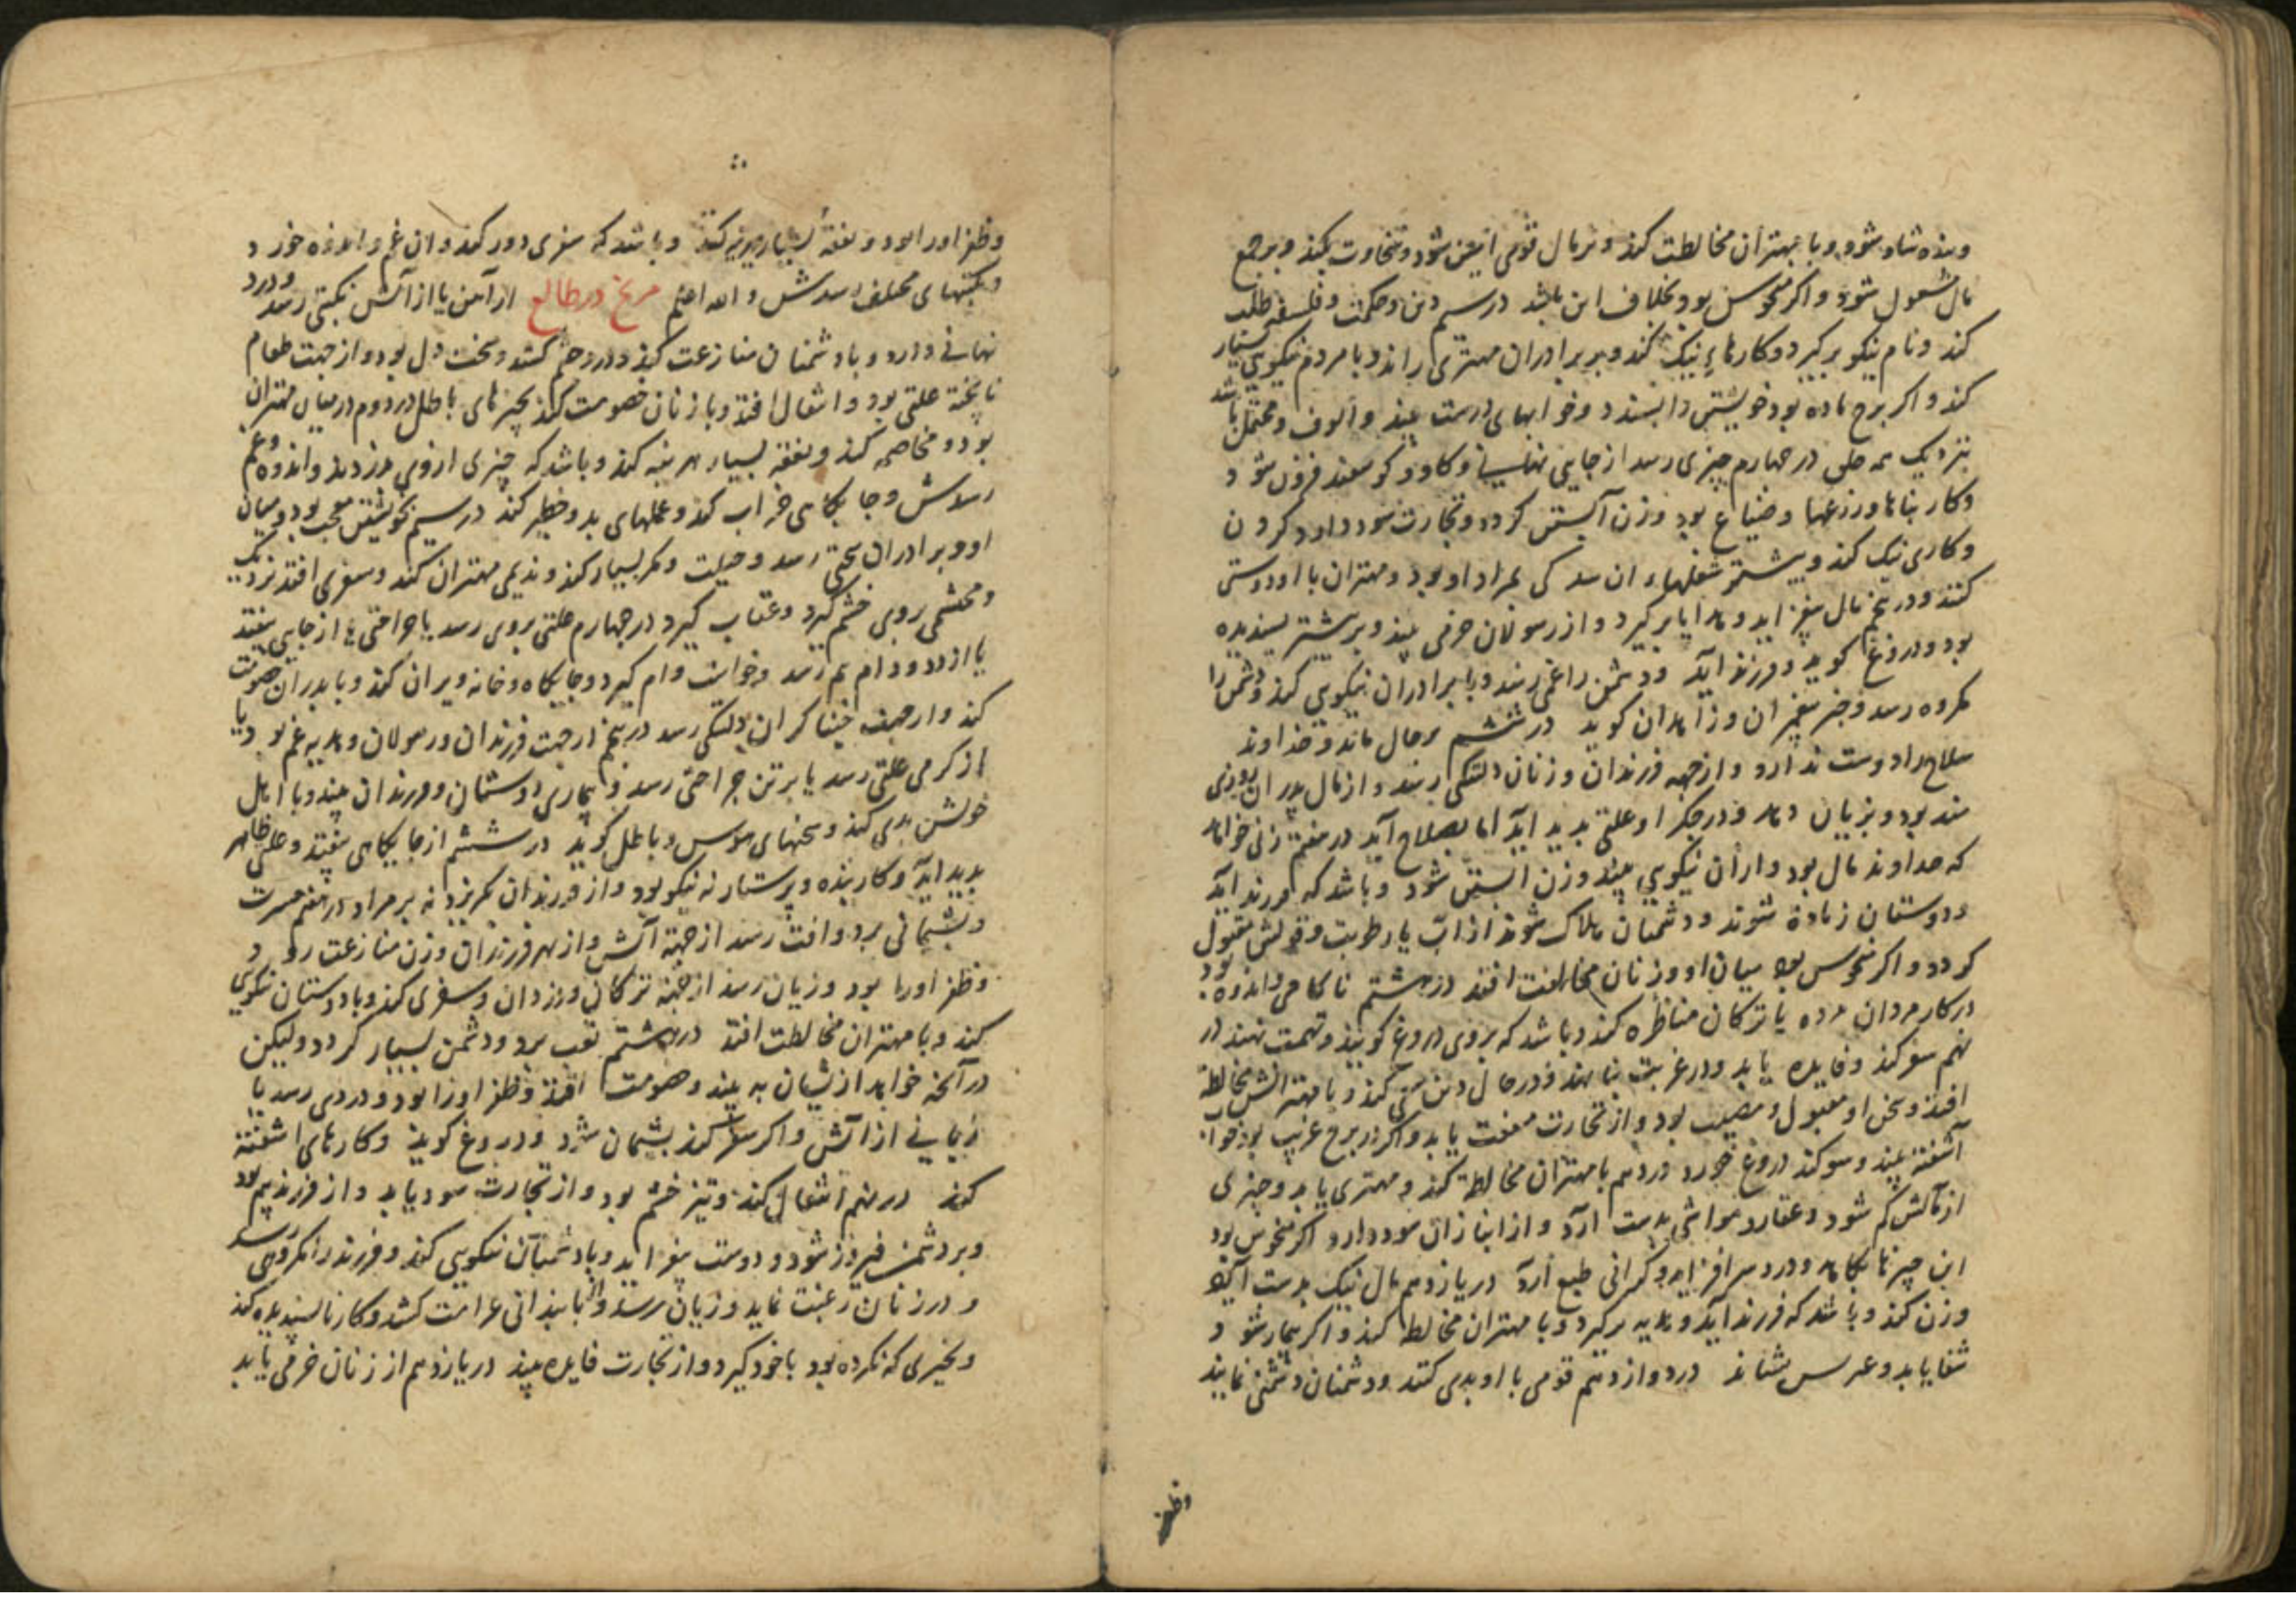 وبنده شاد شود و با مهتران مخالطت کند و بر مال قومی امین شود و سخاوت کند و بر جمع
مال مشعول شود و اکر منحوس بود بخلاف این باشد در سیم دین و حکمت و فلسفه طلب
کند و نام نیکو بر کیرد و کارهاء نیک کند و بر برادران مهتری راند و با مردم نیکویی بسیار
کند و اکر برج ماده بود خویشتن را بسندد و خوابهای درست بیند و الوف و محتمل باشد
نزدیک همه خلق در چهارم چیزی رسد از جایی نهانی و کاو و کوسفند فزون شود
و کار بناها و زرعها و ضیاع بود وزن آبستن کردد و تجارت سود دارد کردن
و کاری نیک کند و بیشتر شغلهاء ان سد کی بمراد او بود و مهتران با او دوستی
کنند و در پنجم مال بیفزاید و هدایا بر کیرد و از رسولان خرمی بیند و بر بیشتر بسندیده
بود و دروغ کوید و فرزند آید و دشمن را غمی رسد و با برادران نیکویی کند و دشمن را
مکروه رسد و خبر پیغمبران و زاهدان کوید در ششم بر حال ماند و خداوند
سلاح را دوست ندارد و از جهه فرزندان و زنان دلتنکی رسد و از مال پدران روزی
مند بود و بزیان دهد و در جکر او علتی بدید آید اما بصلاح آید در هفتم زنی خواهد
که خداوند مال بود و از آن نیکویی بیند وزن ابستن شود و باشد که فرزند آید
و دوستان زیاده شوند و دشمنان هلاک شوند از آب یا رطوبت و قولش مقبول
کردد و اکر منحوس بود میان او و زنان مخالفت افتد در هشتم ناکامی و اندوه بود
در کار مردان مرده یا ترکان مناظره کند و باشد که بروی دروغ کویند و تهمت نهند در
نهم سفر کند و فایده یابد و در غربت بنا نهد و در حال دین سعی کند و با مهترانش مخالطه
افتد و سخن او مقبول و مصیب بود و از تجارت منفعت یابد و اکر در برج غریب بود خواب
آشفته بیند و سوکند دروغ خورد در دهم با مهتران مخالطه کند و مهتری یابد و چیزی
از مالش کم شود و عقار و مواشی بدست آرد و از انبازان سود دارد و اکر منحوس بود
این چیزها بکاهد و درد سر افزاید و کرانی طبع آرد در یازدهم مال نیک بدست آید و
وزن کند و باشد که فرزند آید و هدیه بر کیرد و با مهتران مخالطه کند و اکر بیمار شود
شفا یابد و عرس بشاند در دوازدهم قومی با او بدی کنند و دشمنان دشمنی نمایند
وظفر
وظفر اورا بود و نفقه بسیار هزینه کند و باشد که سفری دور کند و ان غم و اندوه خورد
و نکبتهای مختلف رسدش و الله اعلم مریخ در طالع از آهن یا از آتش نکبتی رسد و درد
نهانی دارد و با دشمنان منازعت کند و درو خشم کشد و سخت دل بود و از جهت طعام
ناپخته علتی بود و اشغال افتد و با زنان خصومت کند بچیزهای باطل در دوم در میان مهتران
بود و مخاصمه کند و نفقه بسیار هزینه کند و باشد که چیزی از وی بدزدند و اندوه و غم
رسدش و جایکاهی خراب کند و عملهای بد و خطر کند در سیم بخویشتن معجب بود و میان
او و برادران سختی رسد و حیلت و مکر بسیار کند و ندیمی مهتران کند و سفری افتد نزدیک
و محتشمی بروی خشم کیرد و عتاب کیرد در چهارم علتی بروی رسد یا جراحتی یا از جایی بیفتد
یا از دد و دام بیم رسد و خواست وام کیرد و جایکاه و خانه ویران کند و با پدران خصومت
کند و از جهت خنیاکران دلتنکی رسد در پنجم از جهت فرزندان و رسولان و هدیه غم بود و یا
از کرمی علتی رسد یا بر تن جراحتی رسد و بیماری دوستان و فرزندان بیند و با اهل
خویش بدی کند و سخنهای هوس و باطل کوید در ششم از جایکاهی بیفتد و علتی ظاهر
بدید آید و کار بنده و پرستار نه نیکو بود و از فرزندان بکریزد نه بر مراد در هفتم حسرت
و پشیمانی برد و افت رسد از جهة آتش و از بهر فرزندان و زن منازعت رود
وظفر اورا بود و زیان رسد از جهة ترکان و دزدان و سفری کند و با دوستان نیکویی
کند و با مهتران مخالطت افتد در هشتم تعب برد و دشمن بسیار کردد ولیکن
در آنچه خواهد از شان به بیند و خصومت افتد و ظفر اورا بود و دردی رسد یا
زیانی از آتش و اکر سفر کند پشیمان شود و دروغ کوید و کارهای اشفته
کند در نهم اشغال کند و تیز خشم بود و از تجارت سود یابد و از فرزند بیم بود
و بر دشمن فیروز شود و دوست بیفزاید و با دشمنان نیکویی کند و فرزند را مکروهی رسد
و در زنان رغبت نماید و زیان رسد و از نابندانی غرامت کشد و کار ناپسندیده کند
و بخیری که نکرده بود باخود کیرد و از تجارت فایده بیند در یازدهم از زنان خرمی یابد